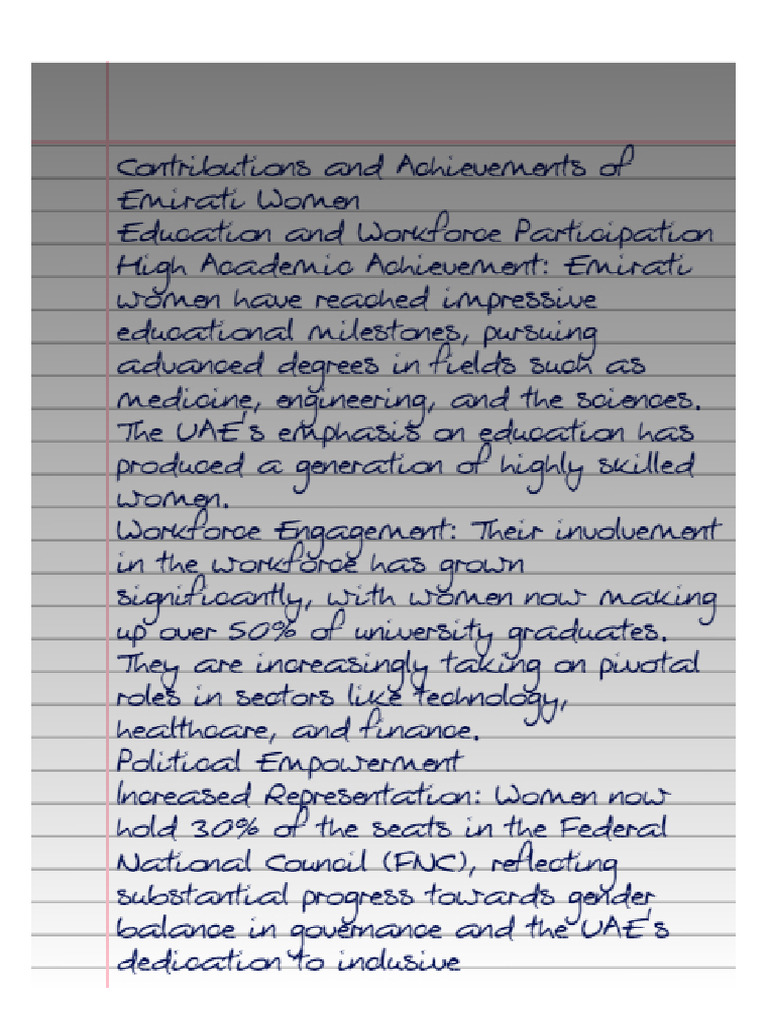 Contributions and Achievements of
Emirati Women
Education and Workforce Participation
High Academic Achievement: Emirati
women have reached impressive
educational milestones, pursuing
advanced degrees in fields such as
medicine, engineering, and the sciences.
The UAE's emphasis on education has
produced a generation of highly skilled
women.
Workforce Engagement: Their involvement
in the workforce has grown
significantly, with women now making
up over 50% of university graduates.
They are increasingly taking on pivotal
roles in sectors like technology,
healthcare, and finance.
Political Empowerment
Increased Representation: Women now
hold 30% of the seats in the Federal
National Council (FNC), reflecting
substantial progress towards gender
balance in governance and the UAE's
dedication to inclusive